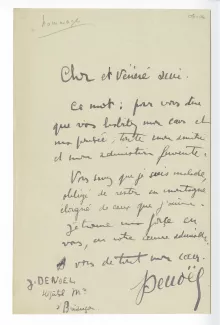 hommage
Cher et Vénéré ami.
Ce mot : pour vous dire
que vous habitez mon cœur et
ma pensée, toute mon amitié
et mon admiration fervente.
Vous savez que je suis malade,
obligé de rester en montagne
éloigné de ceux que j'aime.
Je trouve ma force en
vous, en votre œuvre admirable,
A vous de tout mon cœur.
J. DENOEL